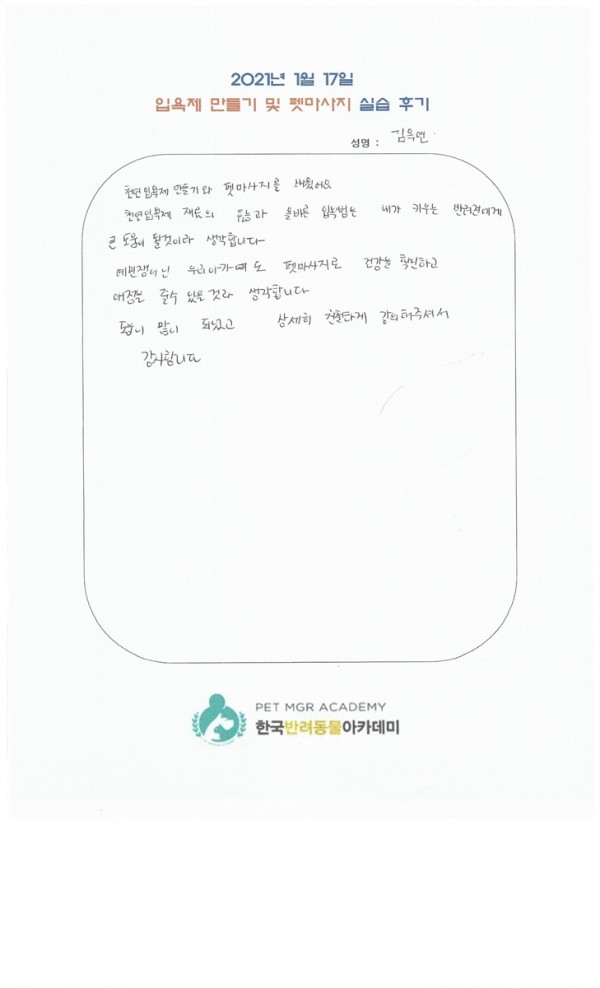 2021년 1월 17일
입욕제 만들기 및 펫마사지 실습 후기
성명 : 김옥연
천연입욕제 만들기와 펫마사지를 배웠어요
천연입욕제 재료의 효능과 올바른 입욕법는 내가 키우는 반려견에게
큰 도움이 될것이라 생각합니다
우리아가에게도 펫마사지로 건강을 확인하고
애정을 줄수 있을것라 생각합니다
도움이 많이 되었고 상세히 친절하게 강의해주셔서
감사합니다
PET MGR ACADEMY
한국반려동물아카데미